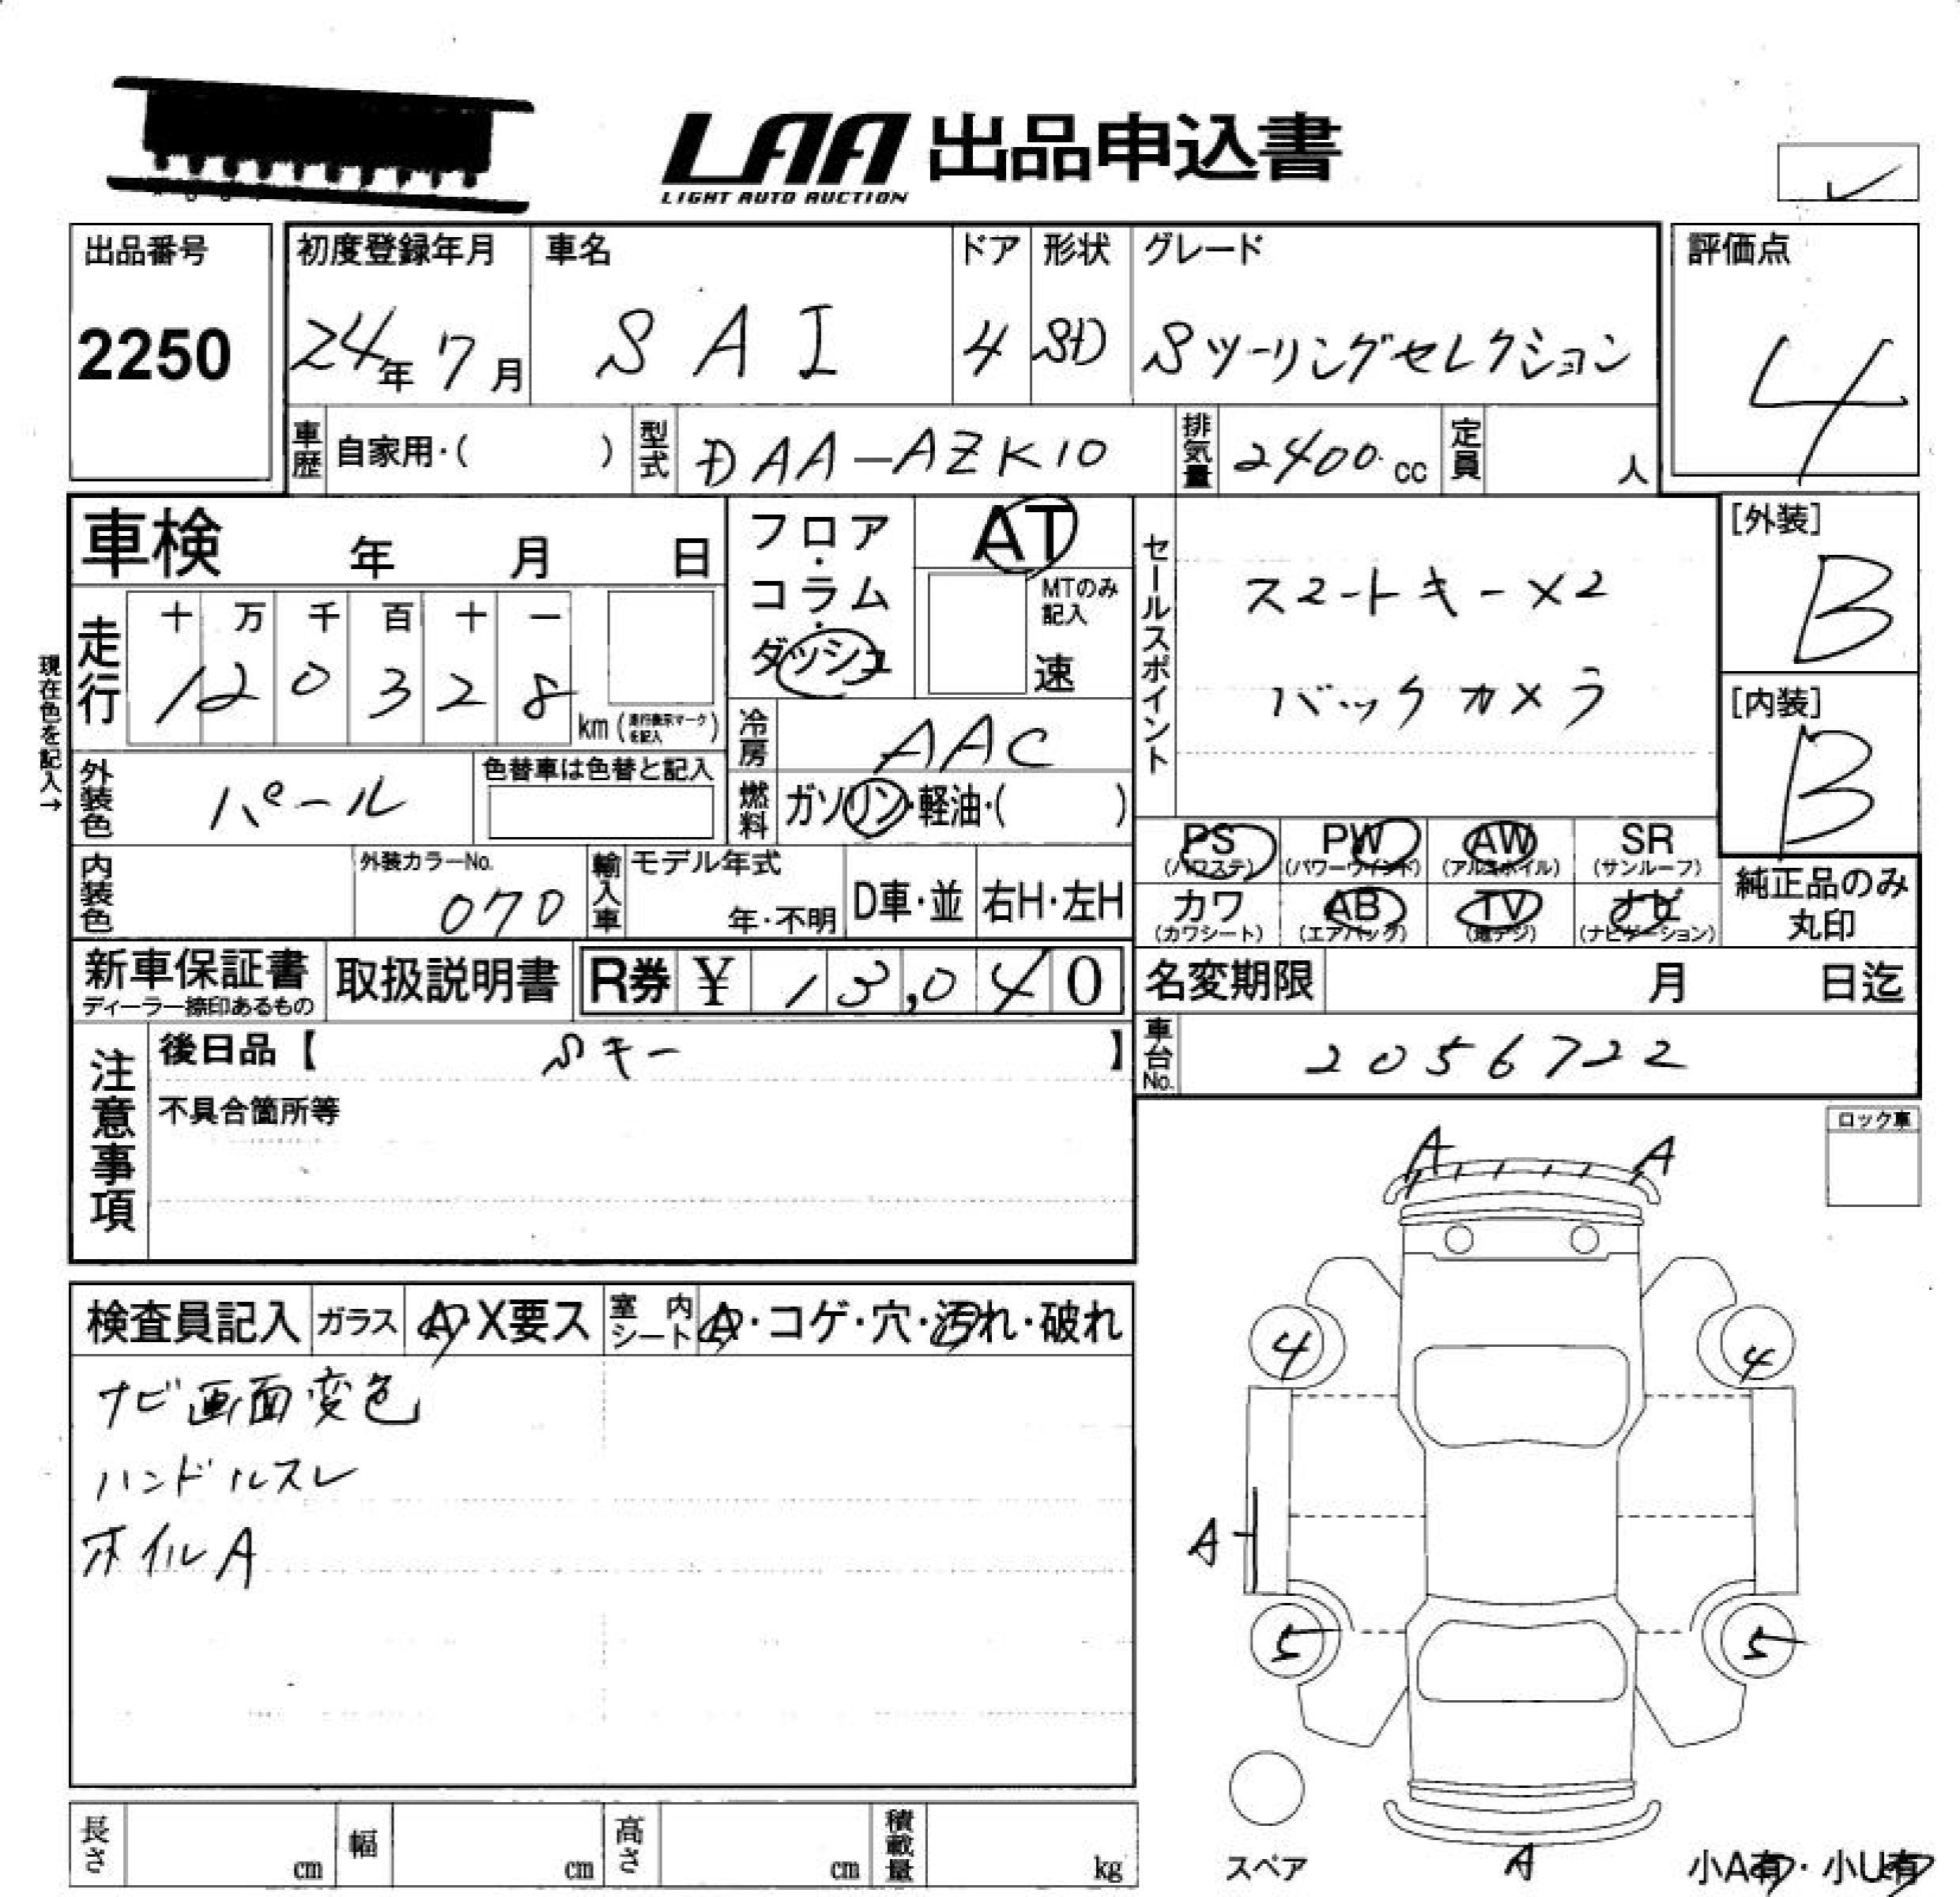 LAA 出品申込書
LIGHT AUTO AUCTION
出品番号 初度登録年月 車名 ドア 形状 グレード 評価点
2250 24年 7月 SAI 4 SD Sツーリングセレクション 4
車歴 自家用・( ) 型式 DAA-AZK10 排気量 2400 cc 定員 人
車検 年 月 日 フロア・コラム・ダッシュ AT
MTのみ記入 速
セールスポイント
スマートキー×2
バックカメラ
[外装] B
[内装] B
現在色を記入→
走行 十 万 千 百 十 一
1 2 0 3 2 8 km (走行表示マークを記入)
冷房 AAC
外装色 パール 色替車は色替と記入
燃料 ガソリン・軽油・( )
PS (パワステ) PW (パワーウィンド) AW (アルミホイル) SR (サンルーフ)
カワ (カワシート) AB (エアバッグ) TV (地デジ) ナビ (ナビゲーション)
純正品のみ丸印
内装色 外装カラーNo. 070 輸入車 モデル年式 年・不明 D車・並 右H・左H
新車保証書 取扱説明書 R券 ¥ 13,040 名変期限 月 日迄
ディーラー捺印あるもの
注意事項 後日品【 Sキー 】 車台No. 2056722
不具合箇所等
ロック車
A A
検査員記入 ガラス A・X要ス 室内シート A・コゲ・穴・汚れ・破れ
4 4
ナビ画面変色
ハンドルスレ
ホイルA
A
5 5
長さ cm 幅 cm 高さ cm 積載量 kg
スペア A 小A有・小U有